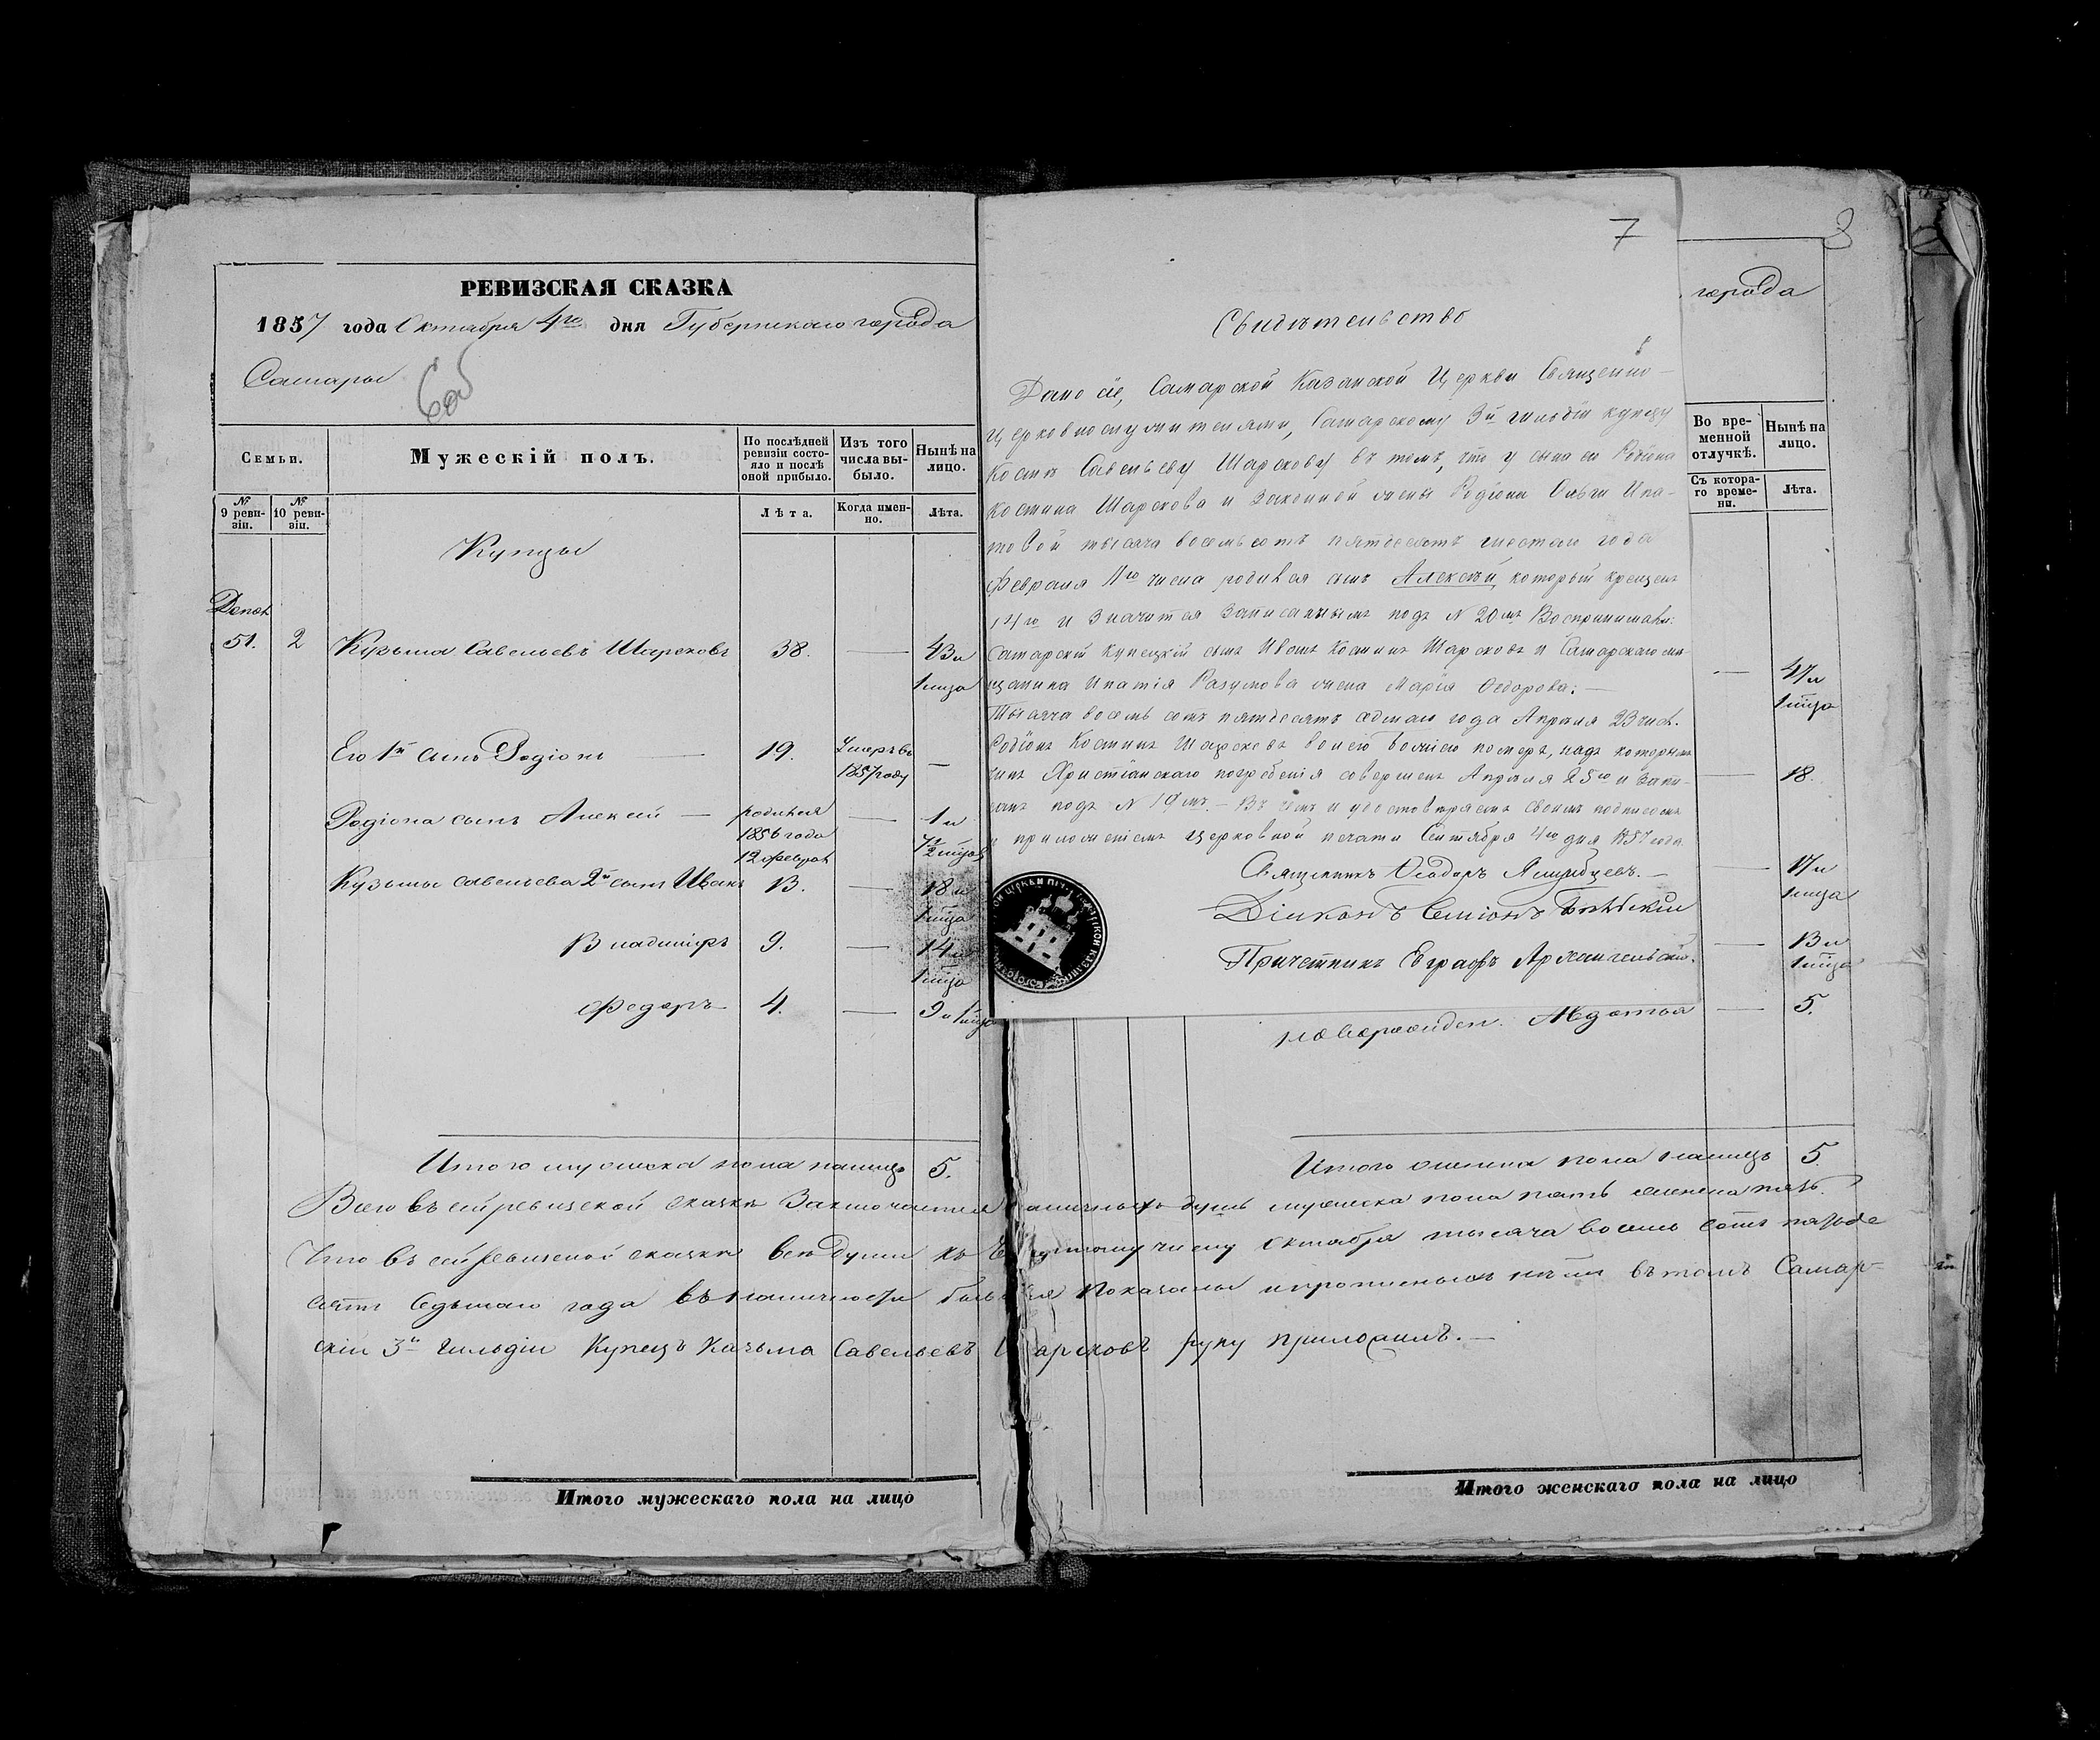 РЕВИЗСКАЯ СКАЗКА
1857 года Октября 4го дня Губернскаго города
Самары
6об
Семьи.
Мужескій полъ.
По послѣдней ревизіи состояло и послѣ оной прибыло.
Изъ того числа выбыло.
Нынѣ на лицо.
№ 9 ревизіи.
№ 10 ревизіи.
Лѣта.
Когда именно.
Лѣта.
Купцы
51. 2 Кузьма Савельевъ Шарсковъ 38. — 43 и
1 мца
Его 1й сынъ Родіонъ — 19. Умеръ въ 1857 году —
Родіона сынъ Алексѣй — родился 1856 года 12 феврал — 1 и
7 1/2 мцов
Кузьмы Савельева 2й сынъ Иванъ 13. — 18 и
1 мца
Владиміръ 9. — 14 и
1 мца
Федоръ 4. — 9 и 1 мца
Итого мужеска пола налицо 5.
7
Свидѣтельство
Дано сіе, Самарской Казанской Церкви Священно-
церковнослужителями, Самарскому 3й гильдіи купцу
Козмѣ Савельеву Шарскову въ томъ, что у сына его Родіона
Козмина Шарскова и законной жены Родіона Ольги Ипа-
товой тысяча восемьсотъ пятдесятъ шестаго года
Февраля 11го числа родился сынъ Алексѣй, который крещенъ
14го и значится записаннымъ подъ N 20мъ Воспринимали:
Самарскій купецкій сынъ Иванъ Козминъ Шарсковъ и Самарскаго мѣ-
щанина Ипатія Разумова жена Марія Федорова: —
Тысяча восемь сотъ пятдесятъ седмаго года Апрѣля 23 числ.
Родіонъ Козминъ Шарсковъ волею Божіею померъ, надъ которымъ
чинъ Христіанскаго погребенія совершенъ Апрѣля 25го и запи-
санъ подъ N 19мъ. — Въ чемъ и удостовѣряемъ своимъ подписомъ
и приложеніемъ церковной печати Сентября 4го дня 1857 года.
Священникъ Феодоръ
Діаконъ Симіонъ
Причетникъ Евграфъ Архангельскій.
8
города
Во временной отлучкѣ.
Нынѣ на лицо.
Съ котораго времени.
Лѣта.
— 47 и
1 мца
— 18.
— 17 и
1 мца
— 13 и
1 мца
новорожден. Авдотья — 5.
Итого женска пола налицо 5.
Всего въ сей ревизской сказкѣ заключается наличныхъ душъ мужеска пола пять женска пять.
Что въ сей ревизской сказкѣ всѣ души къ числу Октября тысяча восемь сотъ пятьде
сятъ седьмаго года въ наличности показаны и прописныхъ нѣтъ въ томъ Самар-
скій 3й гильдіи Купецъ Казьма Савельевъ Шарсковъ руку приложилъ. —
Итого мужескаго пола на лицо
Итого женскаго пола на лицо